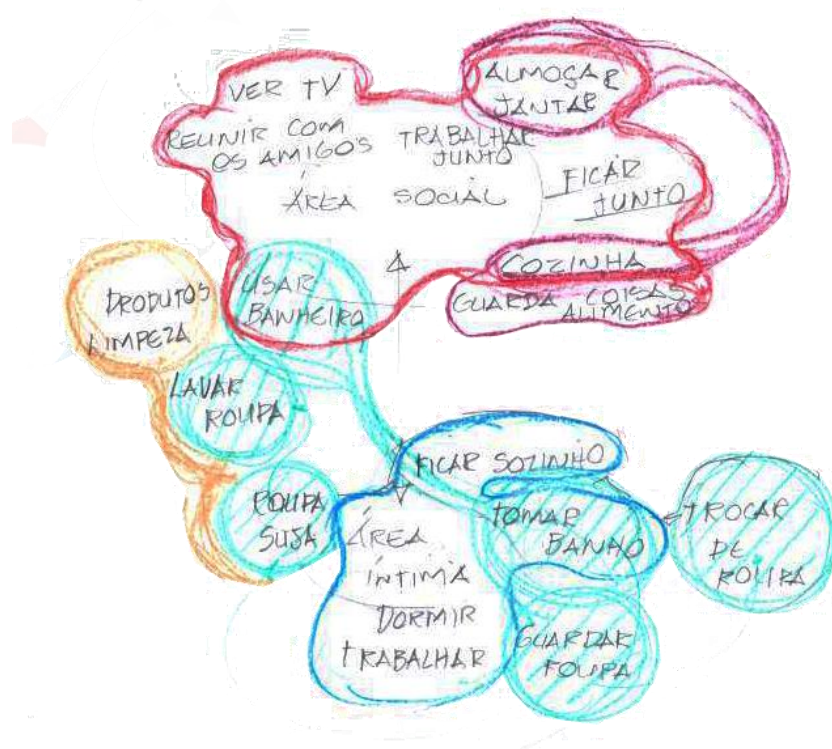 VER TV
ALMOÇAR
JANTAR
REUNIR COM
OS AMIGOS
TRABALHAR
JUNTO
ÁREA SOCIAL
FICAR
JUNTO
COZINHA
GUARDA COISAS
ALIMENTO
USAR
BANHEIRO
PRODUTOS
LIMPEZA
LAVAR
ROUPA
FICAR SOZINHO
ROUPA
SUJA
ÁREA
ÍNTIMA
DORMIR
TRABALHAR
TOMAR
BANHO
TROCAR
DE
ROUPA
GUARDAR
ROUPA